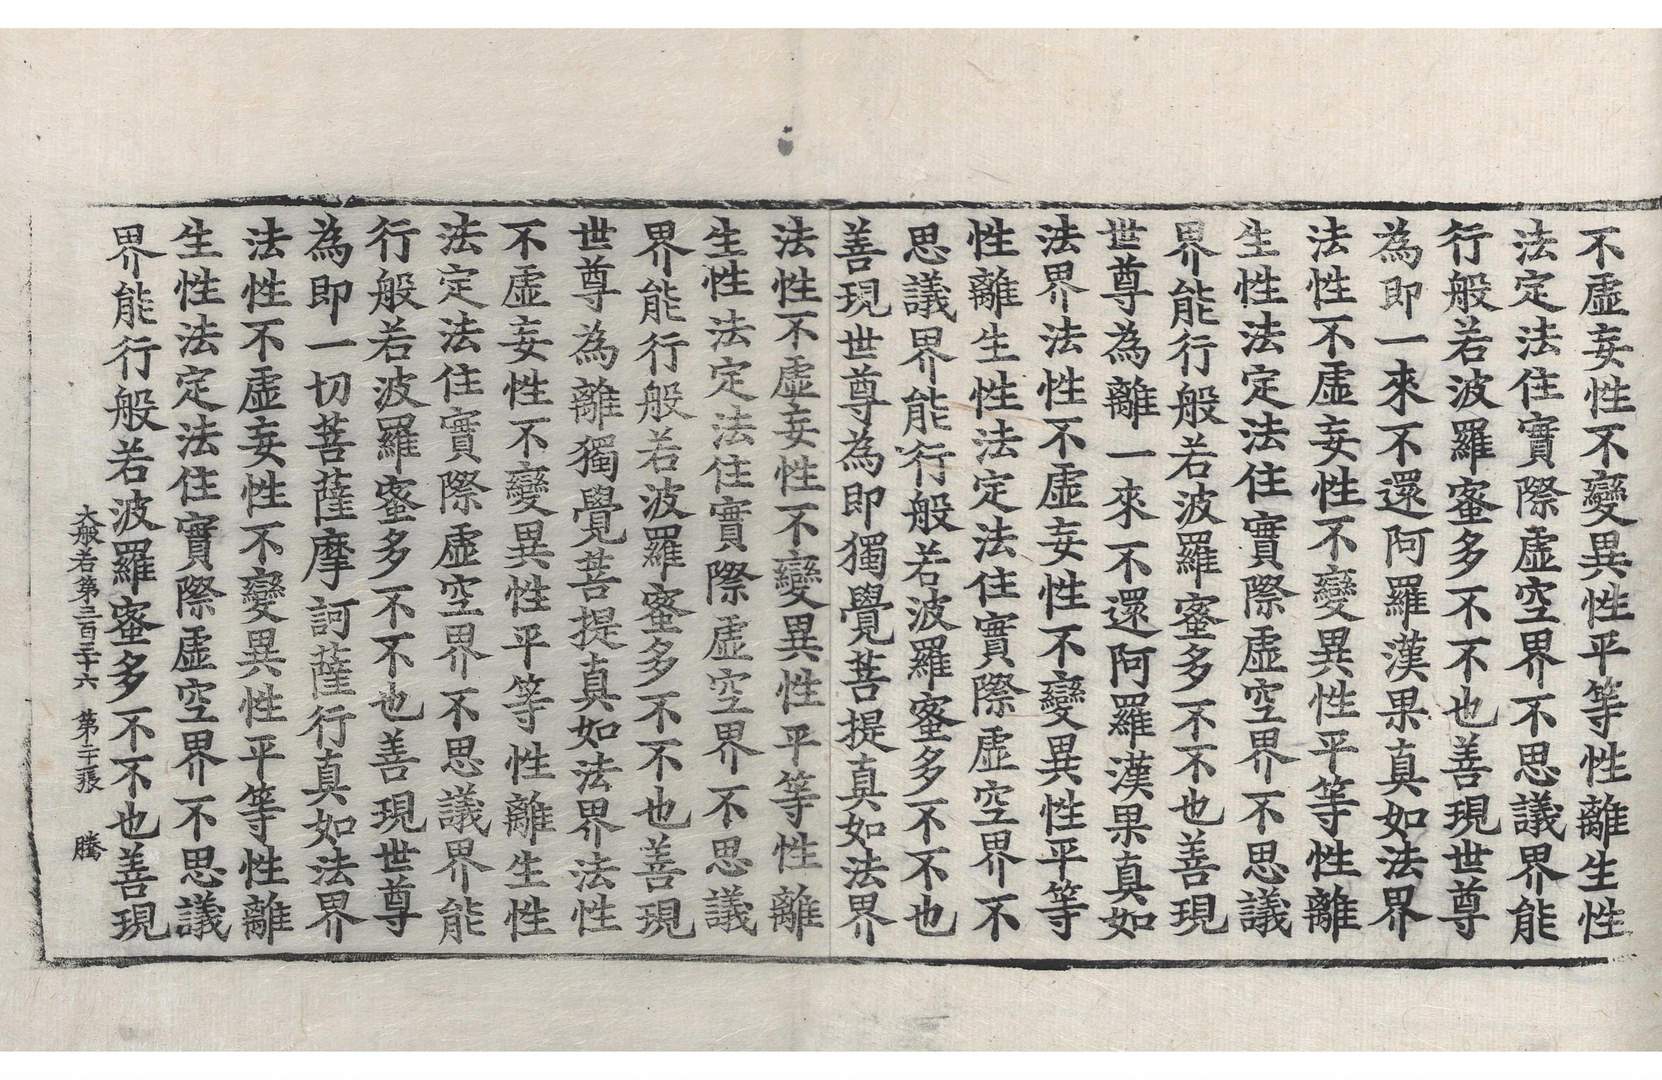 不虛妄性不變異性平等性離生性
法定法住實際虛空界不思議界能
行般若波羅蜜多不不也善現世尊
為即一來不還阿羅漢果真如法界
法性不虛妄性不變異性平等性離
生性法定法住實際虛空界不思議
界能行般若波羅蜜多不不也善現
世尊為離一來不還阿羅漢果真如
法界法性不虛妄性不變異性平等
性離生性法定法住實際虛空界不
思議界能行般若波羅蜜多不不也
善現世尊為即獨覺菩提真如法界
法性不虛妄性不變異性平等性離
生性法定法住實際虛空界不思議
界能行般若波羅蜜多不不也善現
世尊為離獨覺菩提真如法界法性
不虛妄性不變異性平等性離生性
法定法住實際虛空界不思議界能
行般若波羅蜜多不不也善現世尊
為即一切菩薩摩訶薩行真如法界
法性不虛妄性不變異性平等性離
生性法定法住實際虛空界不思議
界能行般若波羅蜜多不不也善現
大般若第三百三十六 第二十張 騰